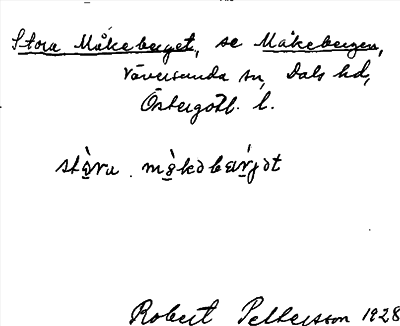 Stora Måkeberget, se Måkebergen,
Väversunda sn, Dals hd,
Östergötl. l.
stὰru mὰkəbærjət
Robert Pettersson 1928